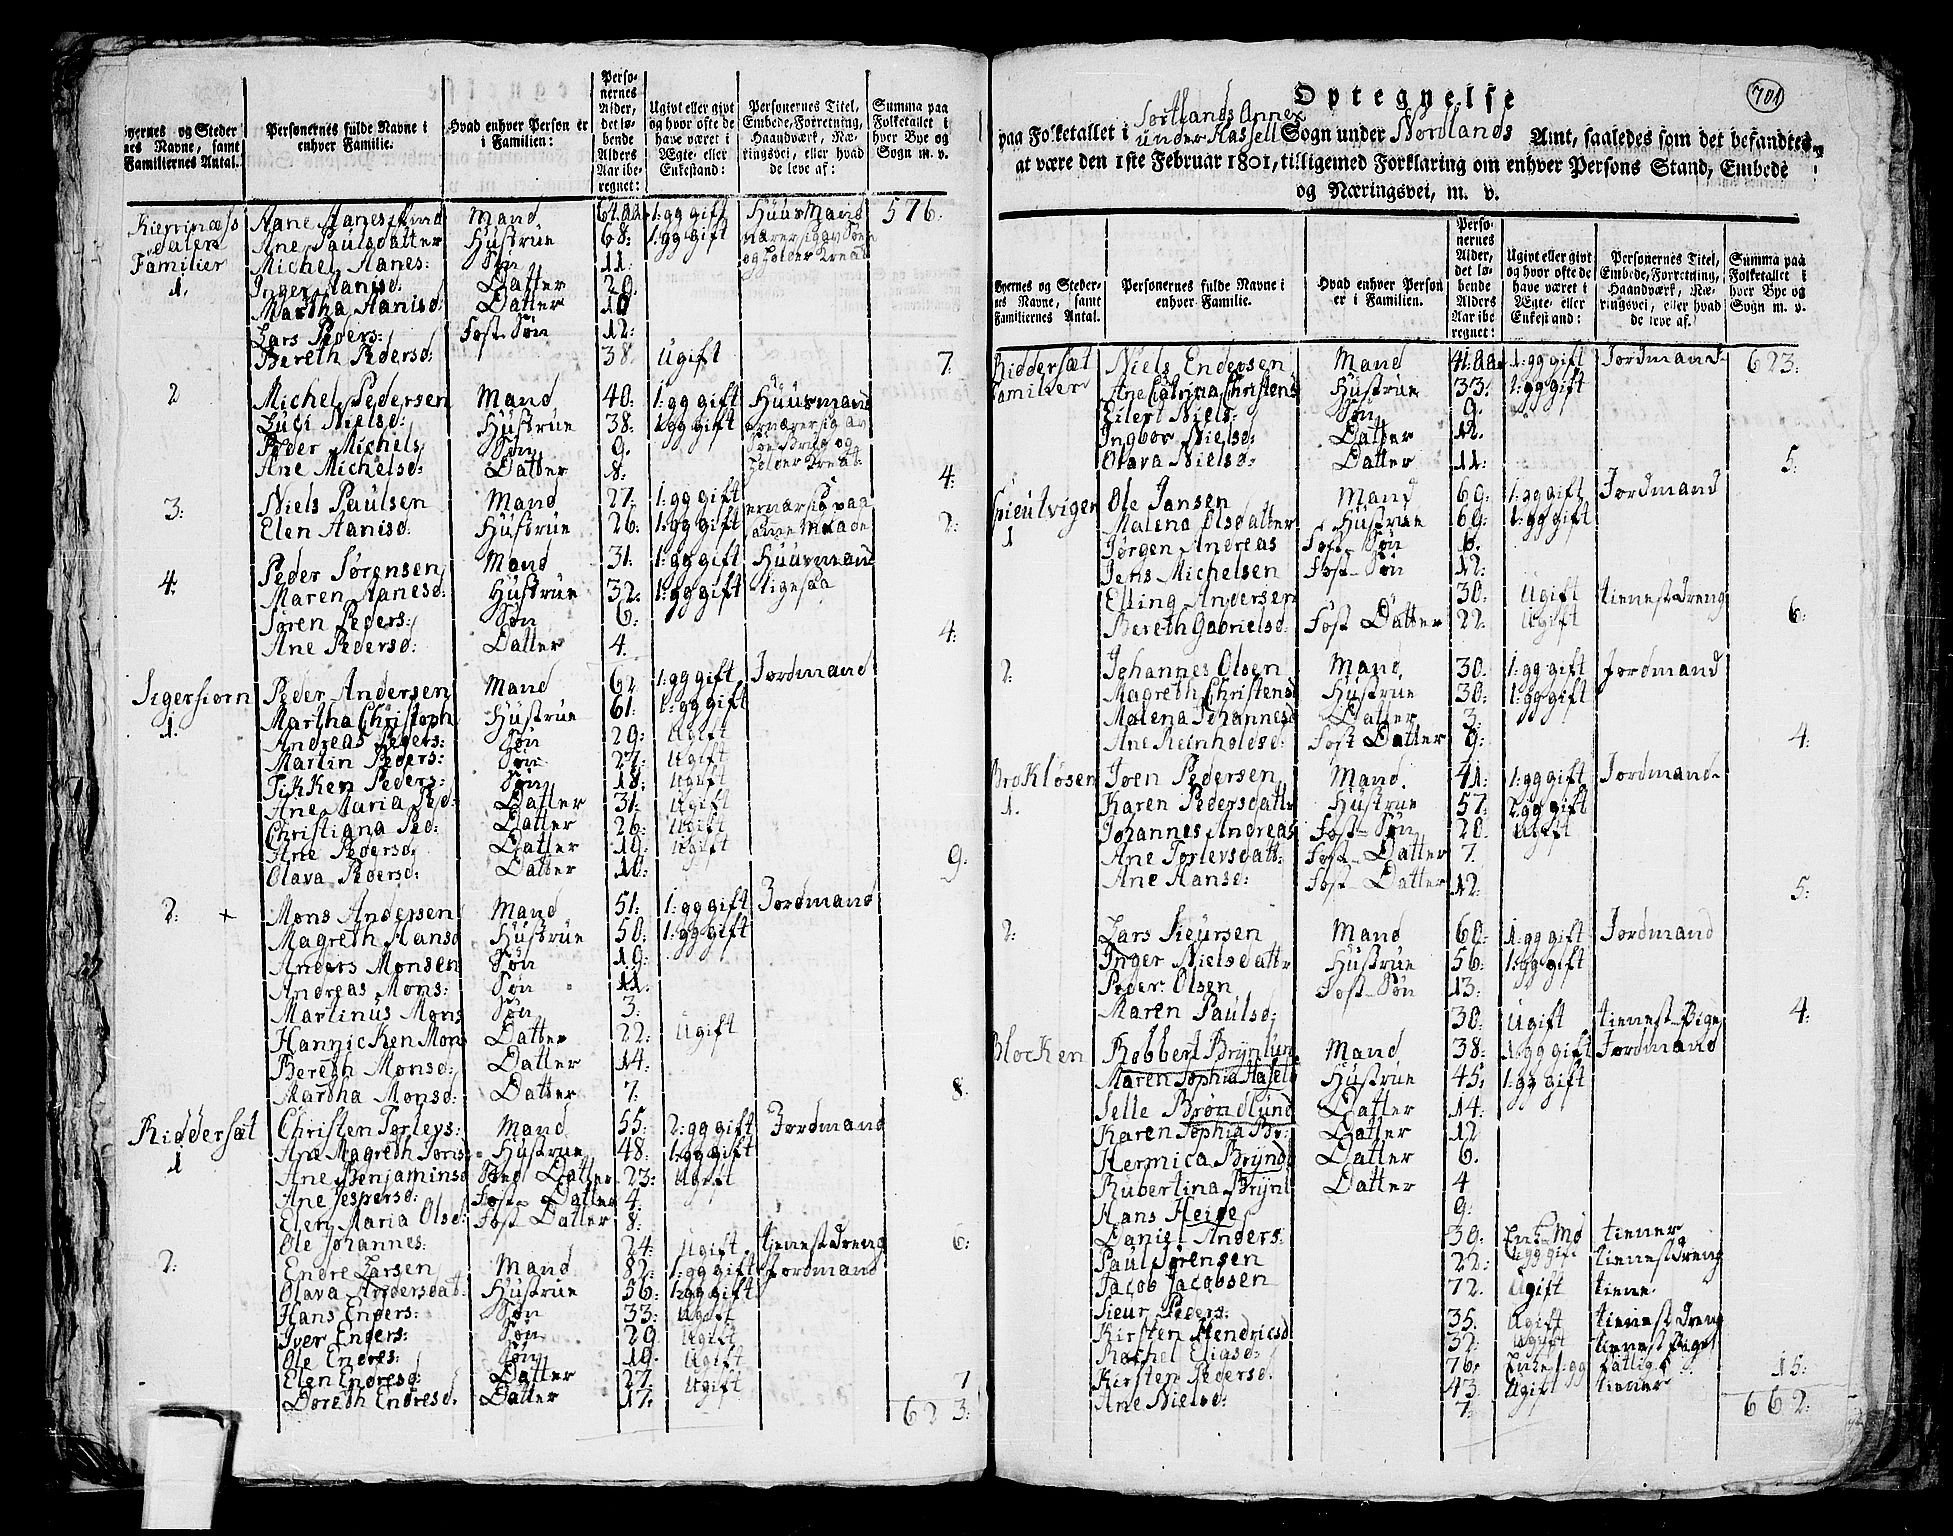 Byernes og Steder
nes Navne, samt
Familiernes Antal.
Personernes fulde Navne i
enhver Familie.
Hvad enhver Person er
i Familien:
Perso-
nernes
Alder,
det lø-
bende
Alders
Aar ibe-
regnet:
Ugivt eller givt
og hvor ofte de
have været i
Ægte- eller
Enkestand:
Personernes Titel,
Embede, Forretning,
Haandværk, Næ-
ringsvei, eller hvad
de leve af:
Summa paa
Folketallet i
hver Bye og
Sogn m. v.
Mand 1: gg gift Huusmand 576.
dalen Ane Paulsdatter Hustrue 68: 1: gg gift
Familier Michel Hanes: Søn 11:
1. Inger Hanisd: Datter 20.
Martha Hanisd: Datter 10
Lars Peders: Fost- Søn 12:
Bereth Pedersd: 38. Ugift 7.
2 Michel Pedersen Mand 40: 1: gg gift Huusmand
Luci Nielsd: Hustrue 38: 1 gg gift ernærer sig av
Peder Michels Søn 9. Søe Brug og
Ane Michelsd: Datter 8: 4.
3: Niels Paulsen Mand 27: 1: gg gift ernær sig paa
Elen Hanisd: Hustrue 26: 1: gg gift samme Maade 2:
4. Peder Sørensen Mand 31: 1: gg gift Huusmand
Maren Hanesd: Hustrue 32: 1: gg gift ligesaa
Søren Peders: Søn 6: 4:
Ane Pedersd: Datter 4.
Sigersiorn Peder Andersen Mand 62 1: gg gift Jordmand
1. Martha Christoph Hustrue 61: 1: gg gift
Andreas Peders: Søn 29: Ugift
Martin Peders: Søn 27: Ugift
Tikken Peders: Søn 18: Ugift
Ane Maria Ped: Datter 31: Ugift
Christiana Ped: Datter 26: Ugift
Ane Pedersd: Datter 19: Ugift
Olava Pedersd: Datter 10: 9.
2: + Mons Andersen Mand 51: 1: gg gift Jordmand
Magreth Hansd Hustrue 50: 1: gg gift
Anders Monsen Søn 19:
Andreas Mons: Søn 11:
Martinus Mons Søn 3:
Hannicken Mons Datter 22: Ugift
Bereth Monsd: Datter 14:
Martha Monsd: Datter 7: 8.
Riddersæt Christen Torleys: Mand 55: 2: gg gift Jordmand
1 Ane Magreth Jons: Hustrue 48: 1: gg gift
Ane Benjaminsd Sted Datter 23: Ugift
Ane Jespersd: Fost- Datter 4.
Elen Maria Olsd: Fost Datter 8:
Ole Johannes: 24: Ugift tienestdreng 6:
2: Endre Larsen Mand 82: 1: gg gift Jordmand
Olava Andersdat: Hustrue 56: 1: gg gift
Hans Enders: Søn 33: Ugift
Iver Enders: Søn 29 Ugift
Ole Endres: Søn 19. Ugift
Elen Endresd: Datter 27: Ugift 7
Doreth Endresd. Datter 17.
623:
701
Optegnelse
Sortlands Annex
paa Folketallet i under Hassell Sogn under Nordlands Amt, saaledes som det befandtes
at være den 1ste Februar 1801, tilligemed Forklaring om enhver Persons Stand, Embede
og Næringsvei, m. v.
Byernes og Steder-
nes Navne, samt
Familiernes Antal.
Personernes fulde Navne i
enhver Familie.
Hvad enhver Person
er i Familien.
Perso-
nernes
Alder,
det lø-
bende
Alders
Aar ibe-
regnet:
Ugivt eller givt
og hvor ofte de
have været i
Ægte- eller
Enkestand:
Personernes Titel,
Embede, Forretning,
Haandværk, Næ-
ringsvei, eller hvad
de leve af.
Summa paa
Folketallet i
hver Bye og
Sogn m. v.
Riddersæt Niels Endersen Mand 41 aa 1: gg gift Jordmand 623:
Familier Ane Catrina Christens Hustrue 33: 1: gg gift
Eilert Niels: Søn 9:
Ingbor Nielsd: Datter 12.
Olava Nielsd: Datter 11: 5:
Ole Jansen Mand 69: 1: gg gift Jordmand
1 Malena Olsdatter Hustrue 69: 1: gg gift
Jørgen Andreas Fost- Søn 6:
Jens Michelsen Fost- Søn 12:
Elling Andersen 30: Ugift tienestdreng
Bereth Gabrielsd: Fost Datter 22: Ugift 6:
2: Johannes Olsen Mand 30: 1: gg gift Jordmand
Magreth Christensd Hustrue 30: 1: gg gift
Malena Johannesd Datter 3:
Ane Reinholdsd: Fost Datter 9: 4:
Brokløsen Joen Pedersen Mand. 41: 1: gg gift Jordmand
1. Karen Pedersdatt Hustrue 57: 2 gg gift
Johannes Andreas Fost- Søn 20. Ugift
Ane Torlevsdatt: Fost- Datter 7.
Ane Hansd: Fost- Datter 12: 5:
2: Lars Sieursen Mand 60: 1: gg gift Jordmand
Inger Nielsdatter Hustrue 56: 1: gg gift
Peder Olsen Fost- Søn 13:
Maren Paulsd: 30: Ugift tienest-Pige 4:
Blocken Robbert Brynlund Mand 38: 1 gg gift Jordmand
Maren Sophia Hasels Hustrue 45: 1: gg gift
Selle Brøndlund Datter 14:
Karen Sophia Br: Datter 12
Hermica Brynd Datter 6:
Rubertina Brynl Datter 4
Hans Heide 9:
Daniel Anders: 30: tiener
Paul Sørensen 22: tienestdreng
Jacob Jacobsen 72: Ugift tiene
Sieur Peders: 35. Ugift tienestdreng
Kirsten Hendricsd 32: Ugift tienest Piget
Rachel Eliasd: 76:
Kirsten Pedersd. 43. Ugift tiener 15:
Ane Nielsd: 7: 662: